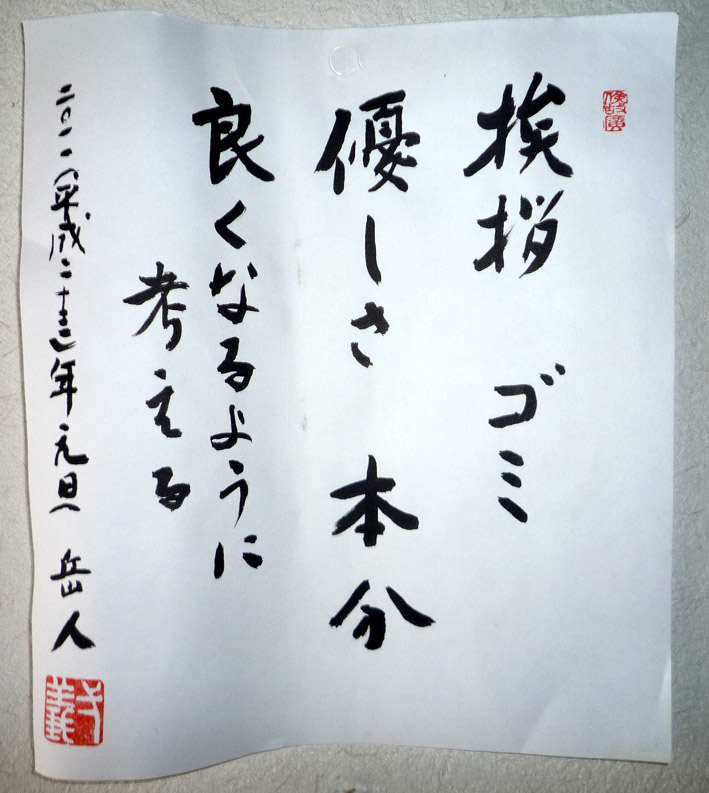 挨拶 ゴミ
優しさ 本分
良くなるように
考える
二〇一一(平成二十三)年元旦 岳人